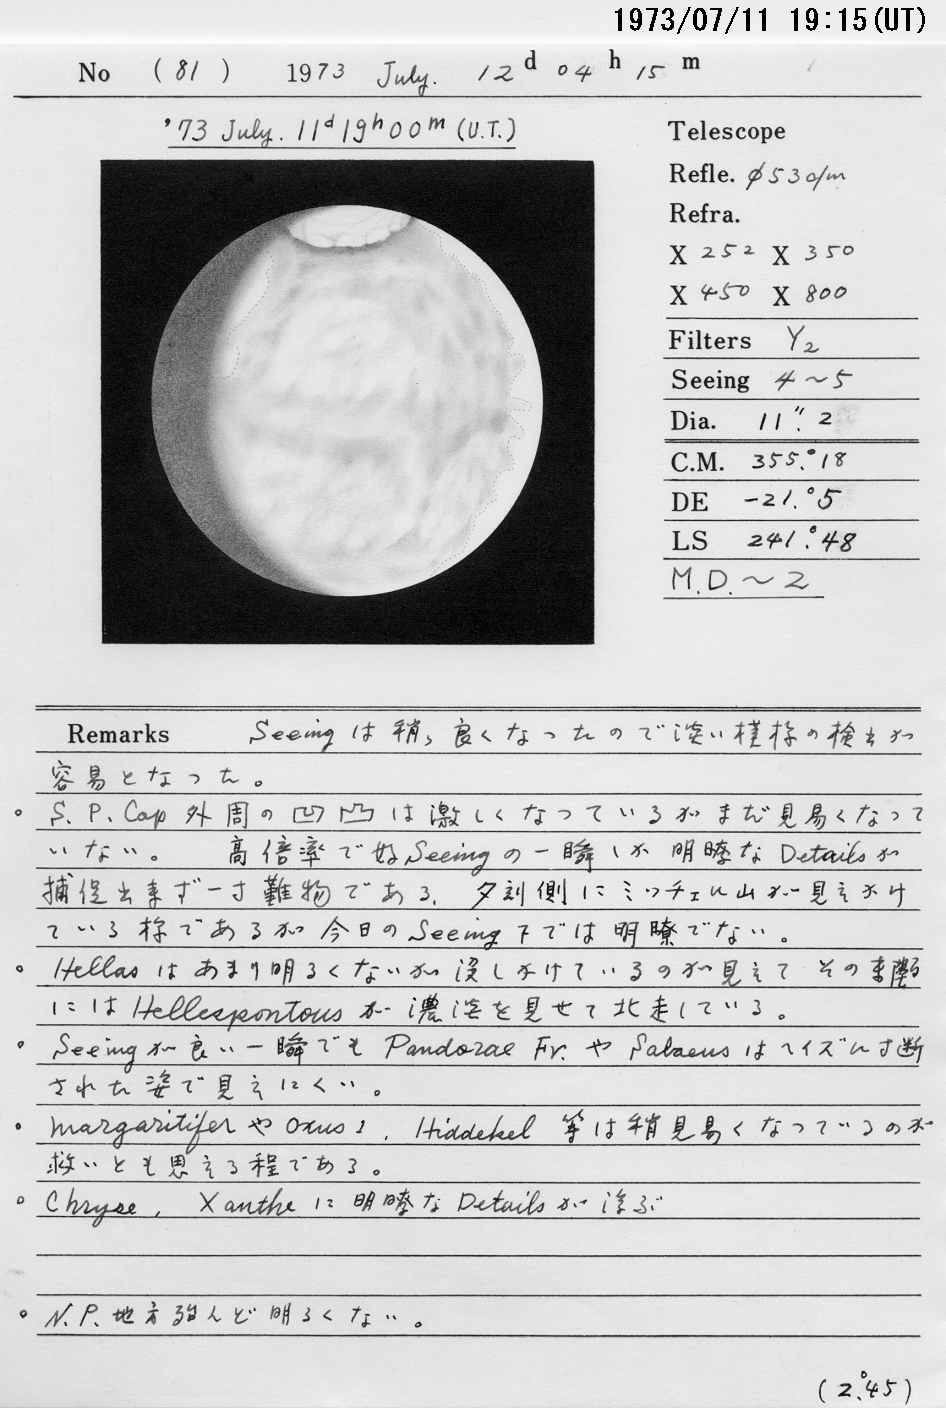 1973/07/11 19:15(UT)
No (81) 1973 July. 12d 04h 15m
'73 July. 11d 19h 00m (U.T.)
Telescope
Refle. φ53c/m
Refra.
X 252 X 350
X 450 X 800
Filters Y2
Seeing 4~5
Dia. 11".2
C.M. 355.°18
DE -21.°5
LS 241.°48
M.D. ~2
Remarks Seeingは稍々良くなったので淡い模様の検出が
容易となった。
。S.P.Cap外周の凹凸は激しくなっているがまだ見易くなって
いない。 高倍率で好Seeingの一瞬しか明瞭なDetailsが
捕促出来ず一寸難物である。夕刻側にミッチェル山が見えかけ
ている様であるが今日のSeeing下では明瞭でない。
。Hellasはあまり明るくないが没しかけているのが見えて その東端
にはHellespontousが濃淡を見せて北走している。
。Seeingが良い一瞬でもPandorae Fr.やSabaeusはヘイズに寸断
された姿で見えにくい。
。MargaritiferやOxus, Hiddekel 等は稍見易くなっているのが
救いとも思える程である。
。Chryse, Xantheに明瞭なDetailsが浮ぶ
。N.P.地方殆んど明るくない。
(2.°45)